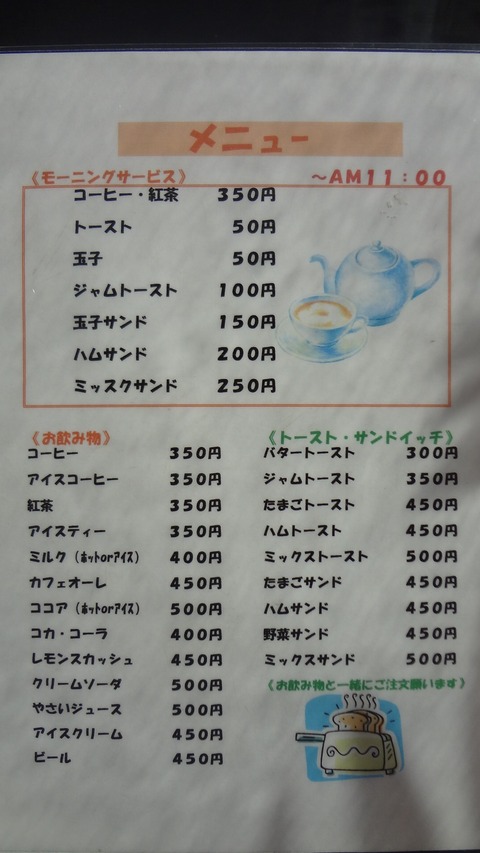 メニュー
《モーニングサービス》 ～AM11：00
コーヒー・紅茶 350円
トースト 50円
玉子 50円
ジャムトースト 100円
玉子サンド 150円
ハムサンド 200円
ミッスクサンド 250円
《お飲み物》
コーヒー 350円
アイスコーヒー 350円
紅茶 350円
アイスティー 350円
ミルク（ホットorアイス） 400円
カフェオーレ 450円
ココア（ホットorアイス） 500円
コカ・コーラ 400円
レモンスカッシュ 450円
クリームソーダ 500円
やさいジュース 500円
アイスクリーム 450円
ビール 450円
《トースト・サンドイッチ》
バタートースト 300円
ジャムトースト 350円
たまごトースト 450円
ハムトースト 450円
ミックストースト 500円
たまごサンド 450円
ハムサンド 450円
野菜サンド 450円
ミックスサンド 500円
《お飲み物と一緒にご注文願います》